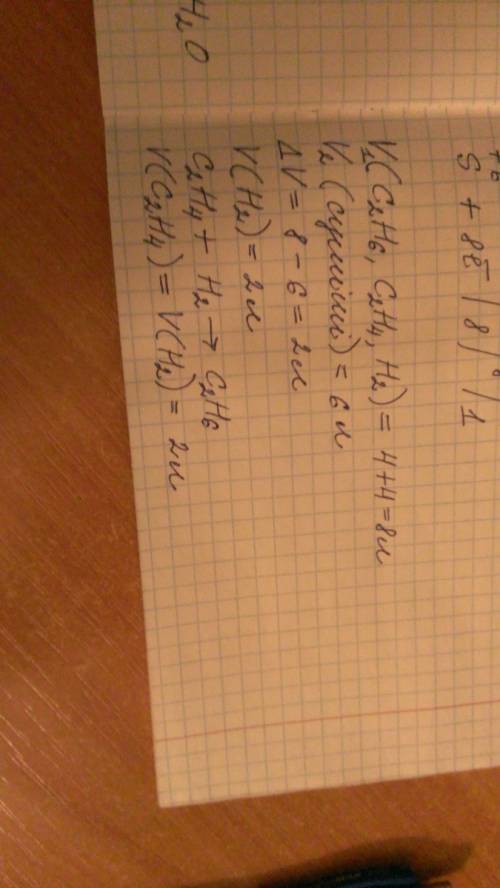 H₂O
S + 8ē | 8 | 1
V₁(C₂H₆, C₂H₄, H₂) = 4+4=8л
V₂ (суміші) = 6 л
ΔV = 8 - 6 = 2л
V(H₂) = 2л
C₂H₄ + H₂ → C₂H₆
V(C₂H₄) = V(H₂) = 2л